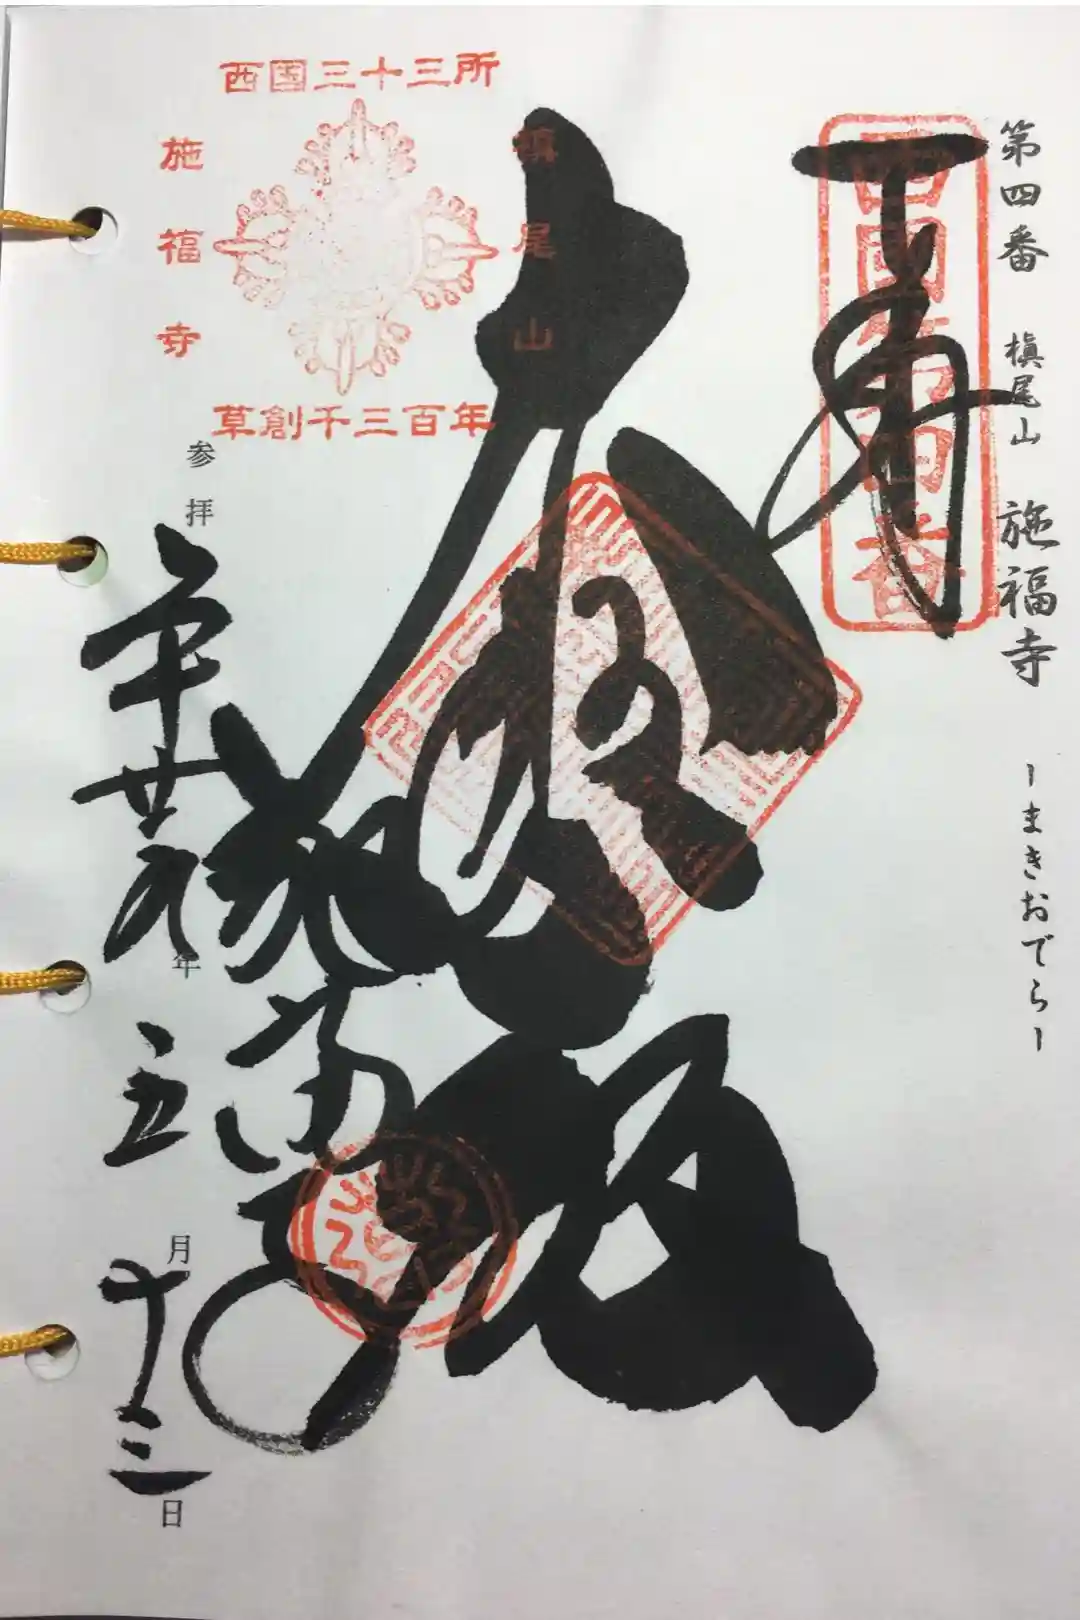 第四番 槇尾山 施福寺 ーまきおでらー
奉拝
西国第四番
大悲殿
西国三十三所
槇尾山
施福寺
草創千三百年
施福寺
参拝 平廿九年 五月 十三日